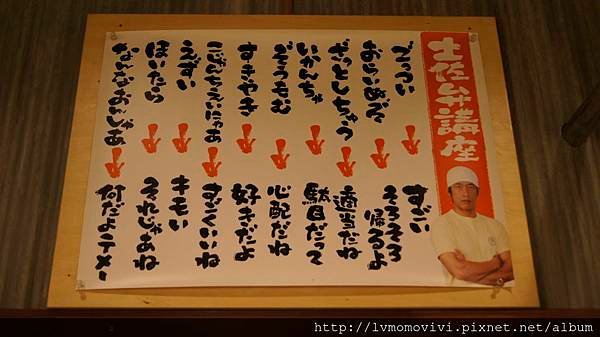 土佐弁講座
ごっつい
おらいぬぞ
ざっとしちゅう
いかんちゃ
ぞうもむ
すきやき
こじゃんちえいにゃあ
えずい
ほいたら
なんなおんしゃあ
すごい
そろそろ帰るよ
適当だね
駄目だって
心配だね
好きだよ
すごくいいね
キモい
それじゃあね
何だよテメー
http://lvmomovivi.pixnet.net/album